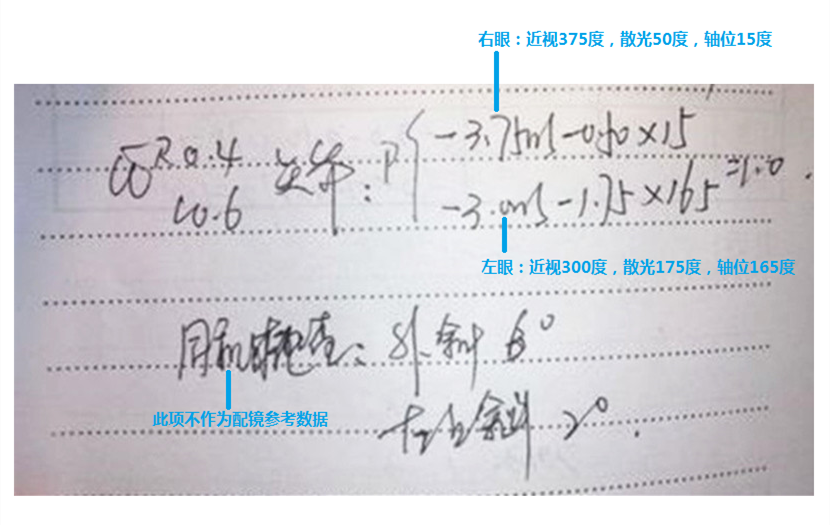 右眼：近视375度，散光50度，轴位15度
R 0.4
-3.75DS -0.50×15
L 0.6
-3.0DS -1.75×165 =1.0
左眼：近视300度，散光175度，轴位165度
同机 检查：外斜 6°
此项不作为配镜参考数据
斜 2°.